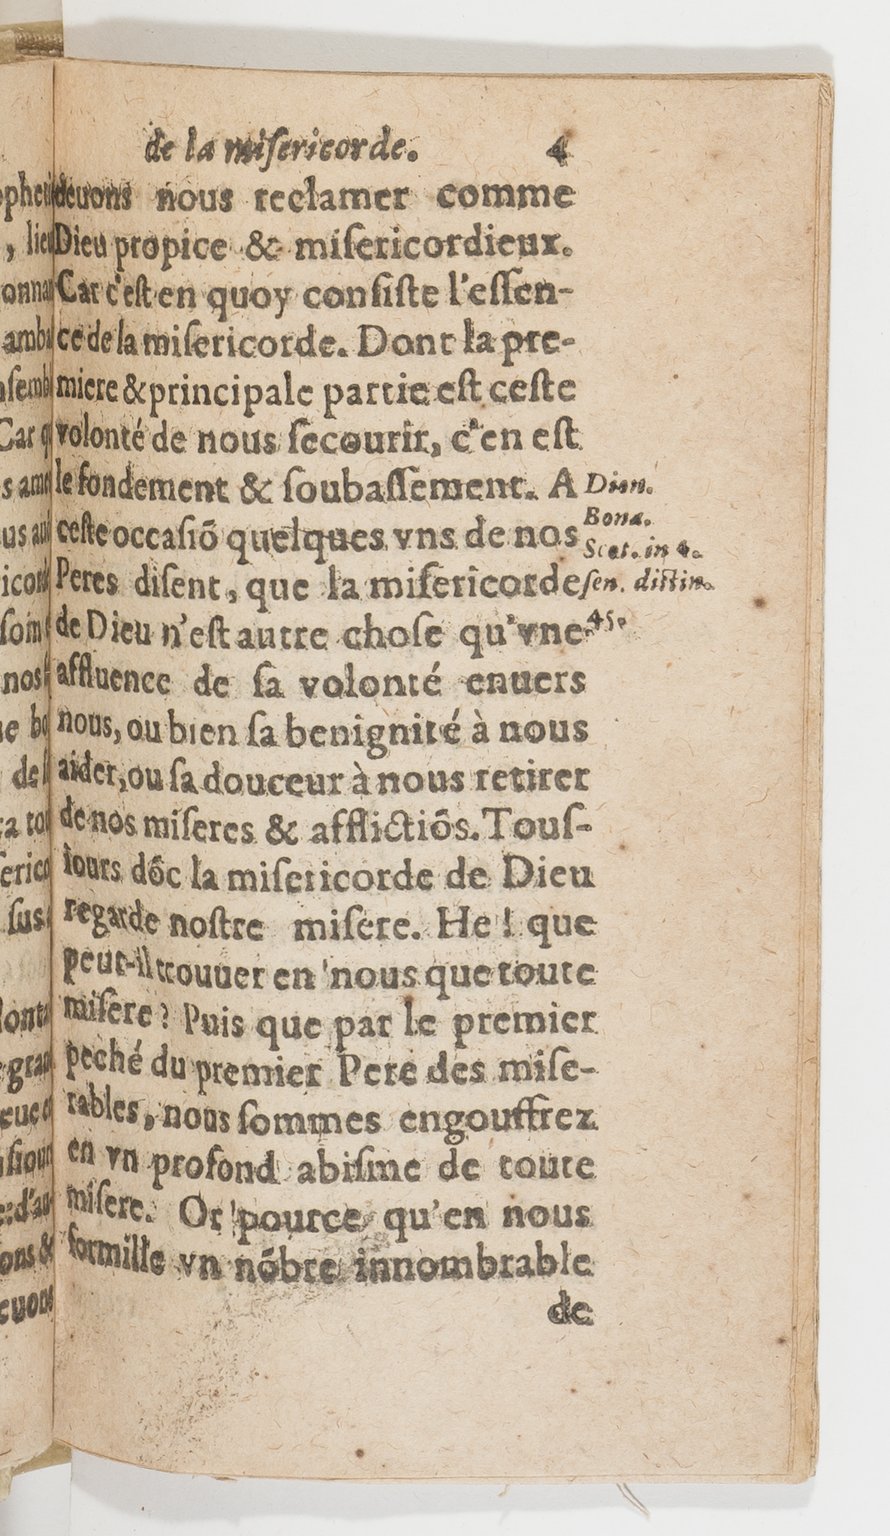 de la miſericorde. 4
deuons nous reclamer comme
Dieu propice & miſericordieux.
Car c'eſt en quoy conſiſte l'eſſen-
ce de la miſericorde. Dont la pre-
miere & principale partie eſt ceſte
volonté de nous ſecourir, c'en eſt
le fondement & ſoubaſſement. A
ceſte occaſiõ quelques vns de nos
Peres diſent, que la miſericorde
de Dieu n'eſt autre choſe qu'vne
affluence de ſa volonté enuers
nous, ou bien ſa benignité à nous
aider, ou ſa douceur à nous retirer
de nos miſeres & afflictiõs. Touſ-
iours dõc la miſericorde de Dieu
regarde noſtre miſere. He! que
peut-il trouuer en nous que toute
miſere? Puis que par le premier
peché du premier Pere des miſe-
rables, nous ſommes engouffrez
en vn profond abiſme de toute
miſere. Or pource qu'en nous
formille vn nõbre innombrable
de
Bona.
Scot. in 4.
ſen. diſtin.
45.